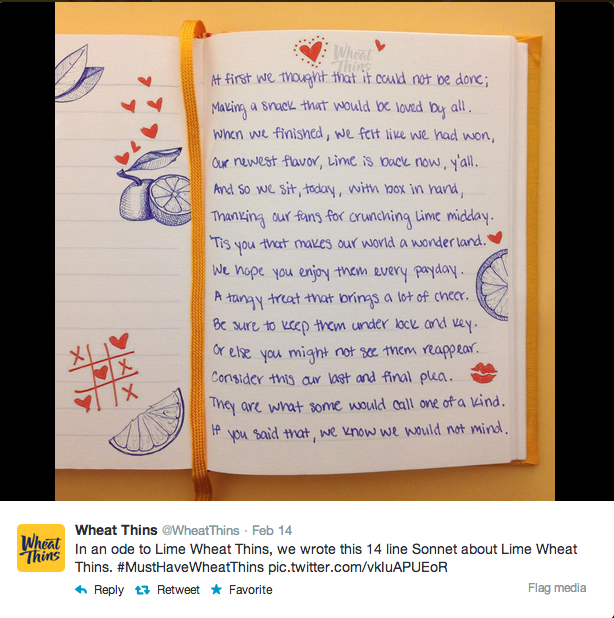 Wheat
Thins
At first we thought that it could not be done;
Making a snack that would be loved by all.
When we finished, we felt like we had won,
Our newest flavor, Lime is back now, y'all.
And so we sit, today, with box in hand,
Thanking our fans for crunching Lime midday.
'Tis you that makes our world a wonderland.
We hope you enjoy them every payday.
A tangy treat that brings a lot of cheer.
Be sure to keep them under lock and key.
Or else you might not see them reappear.
Consider this our last and final plea.
They are what some would call one of a kind.
If you said that, we know we would not mind.
X
X
X
Wheat
Thins
Wheat Thins @WheatThins · Feb 14
In an ode to Lime Wheat Thins, we wrote this 14 line Sonnet about Lime Wheat
Thins. #MustHaveWheatThins pic.twitter.com/vkIuAPUEoR
Reply Retweet Favorite Flag media